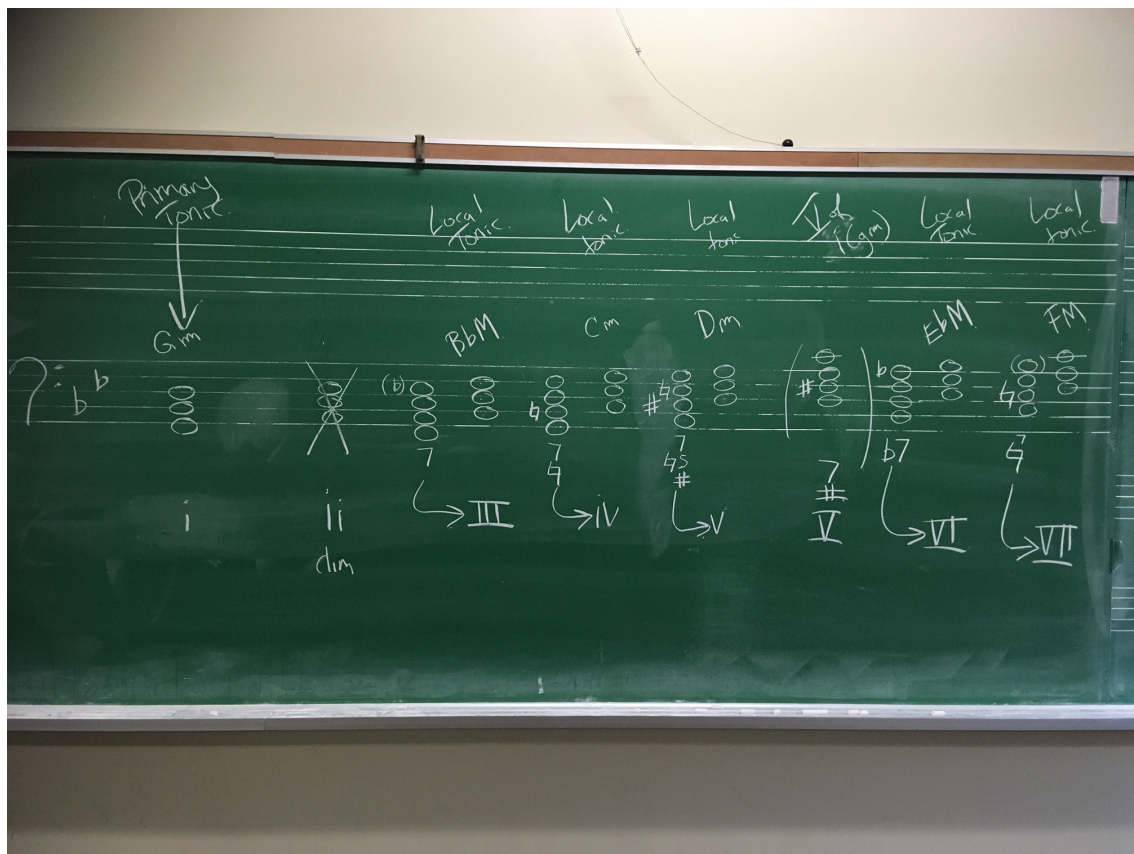 Primary Tonic. Local Tonic. Local tonic. Local tonic V of i (gm) Local Tonic Local tonic.
Gm BbM Cm Dm EbM FM
b b (b) ♮ ♮ # # b ♮
7 7 7 7 b7 ♮
♮ ♮5 #
#
i ii III iv v V VI VII
dim